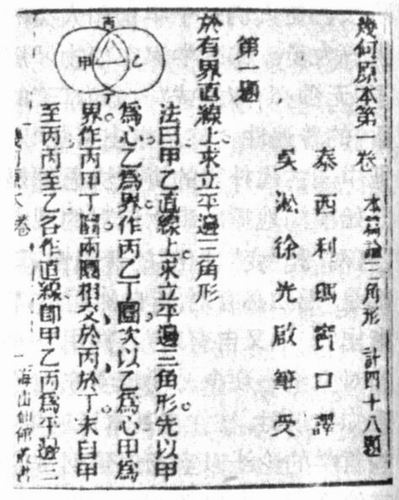 幾何原本第一卷 本篇論三角形 計四十八題
泰西利瑪竇口譯
吳淞徐光啟筆受
第一題
於有界直線上求立平邊三角形
丙
甲
乙
丁
法曰甲乙直線上求立平邊三角形先以甲
為心乙為界作丙乙丁圜次以乙為心甲為
界作丙甲丁圜兩圜相交於丙於丁末自甲
至丙丙至乙各作直線即甲乙丙為平邊三
幾何原本 卷一 海山仙館叢書